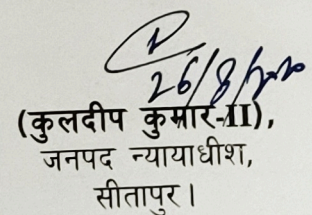 26/8/2020
(कुलदीप कुमार-II),
जनपद न्यायाधीश,
सीतापुर।